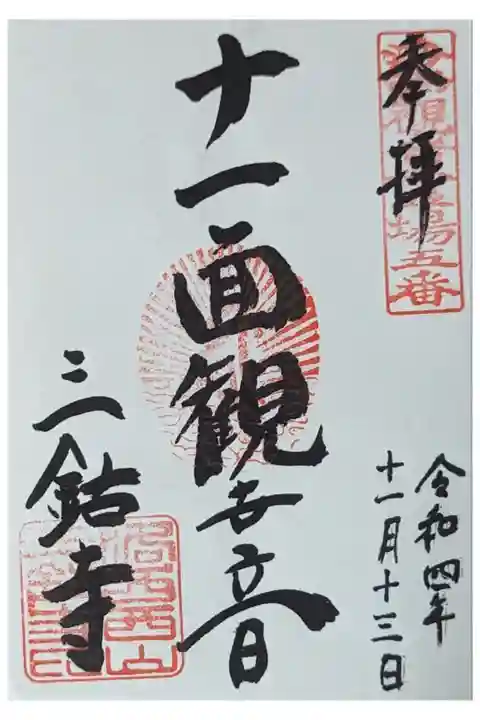 奉拝
令和四年
十一月十三日
十一面観世音
三鈷寺